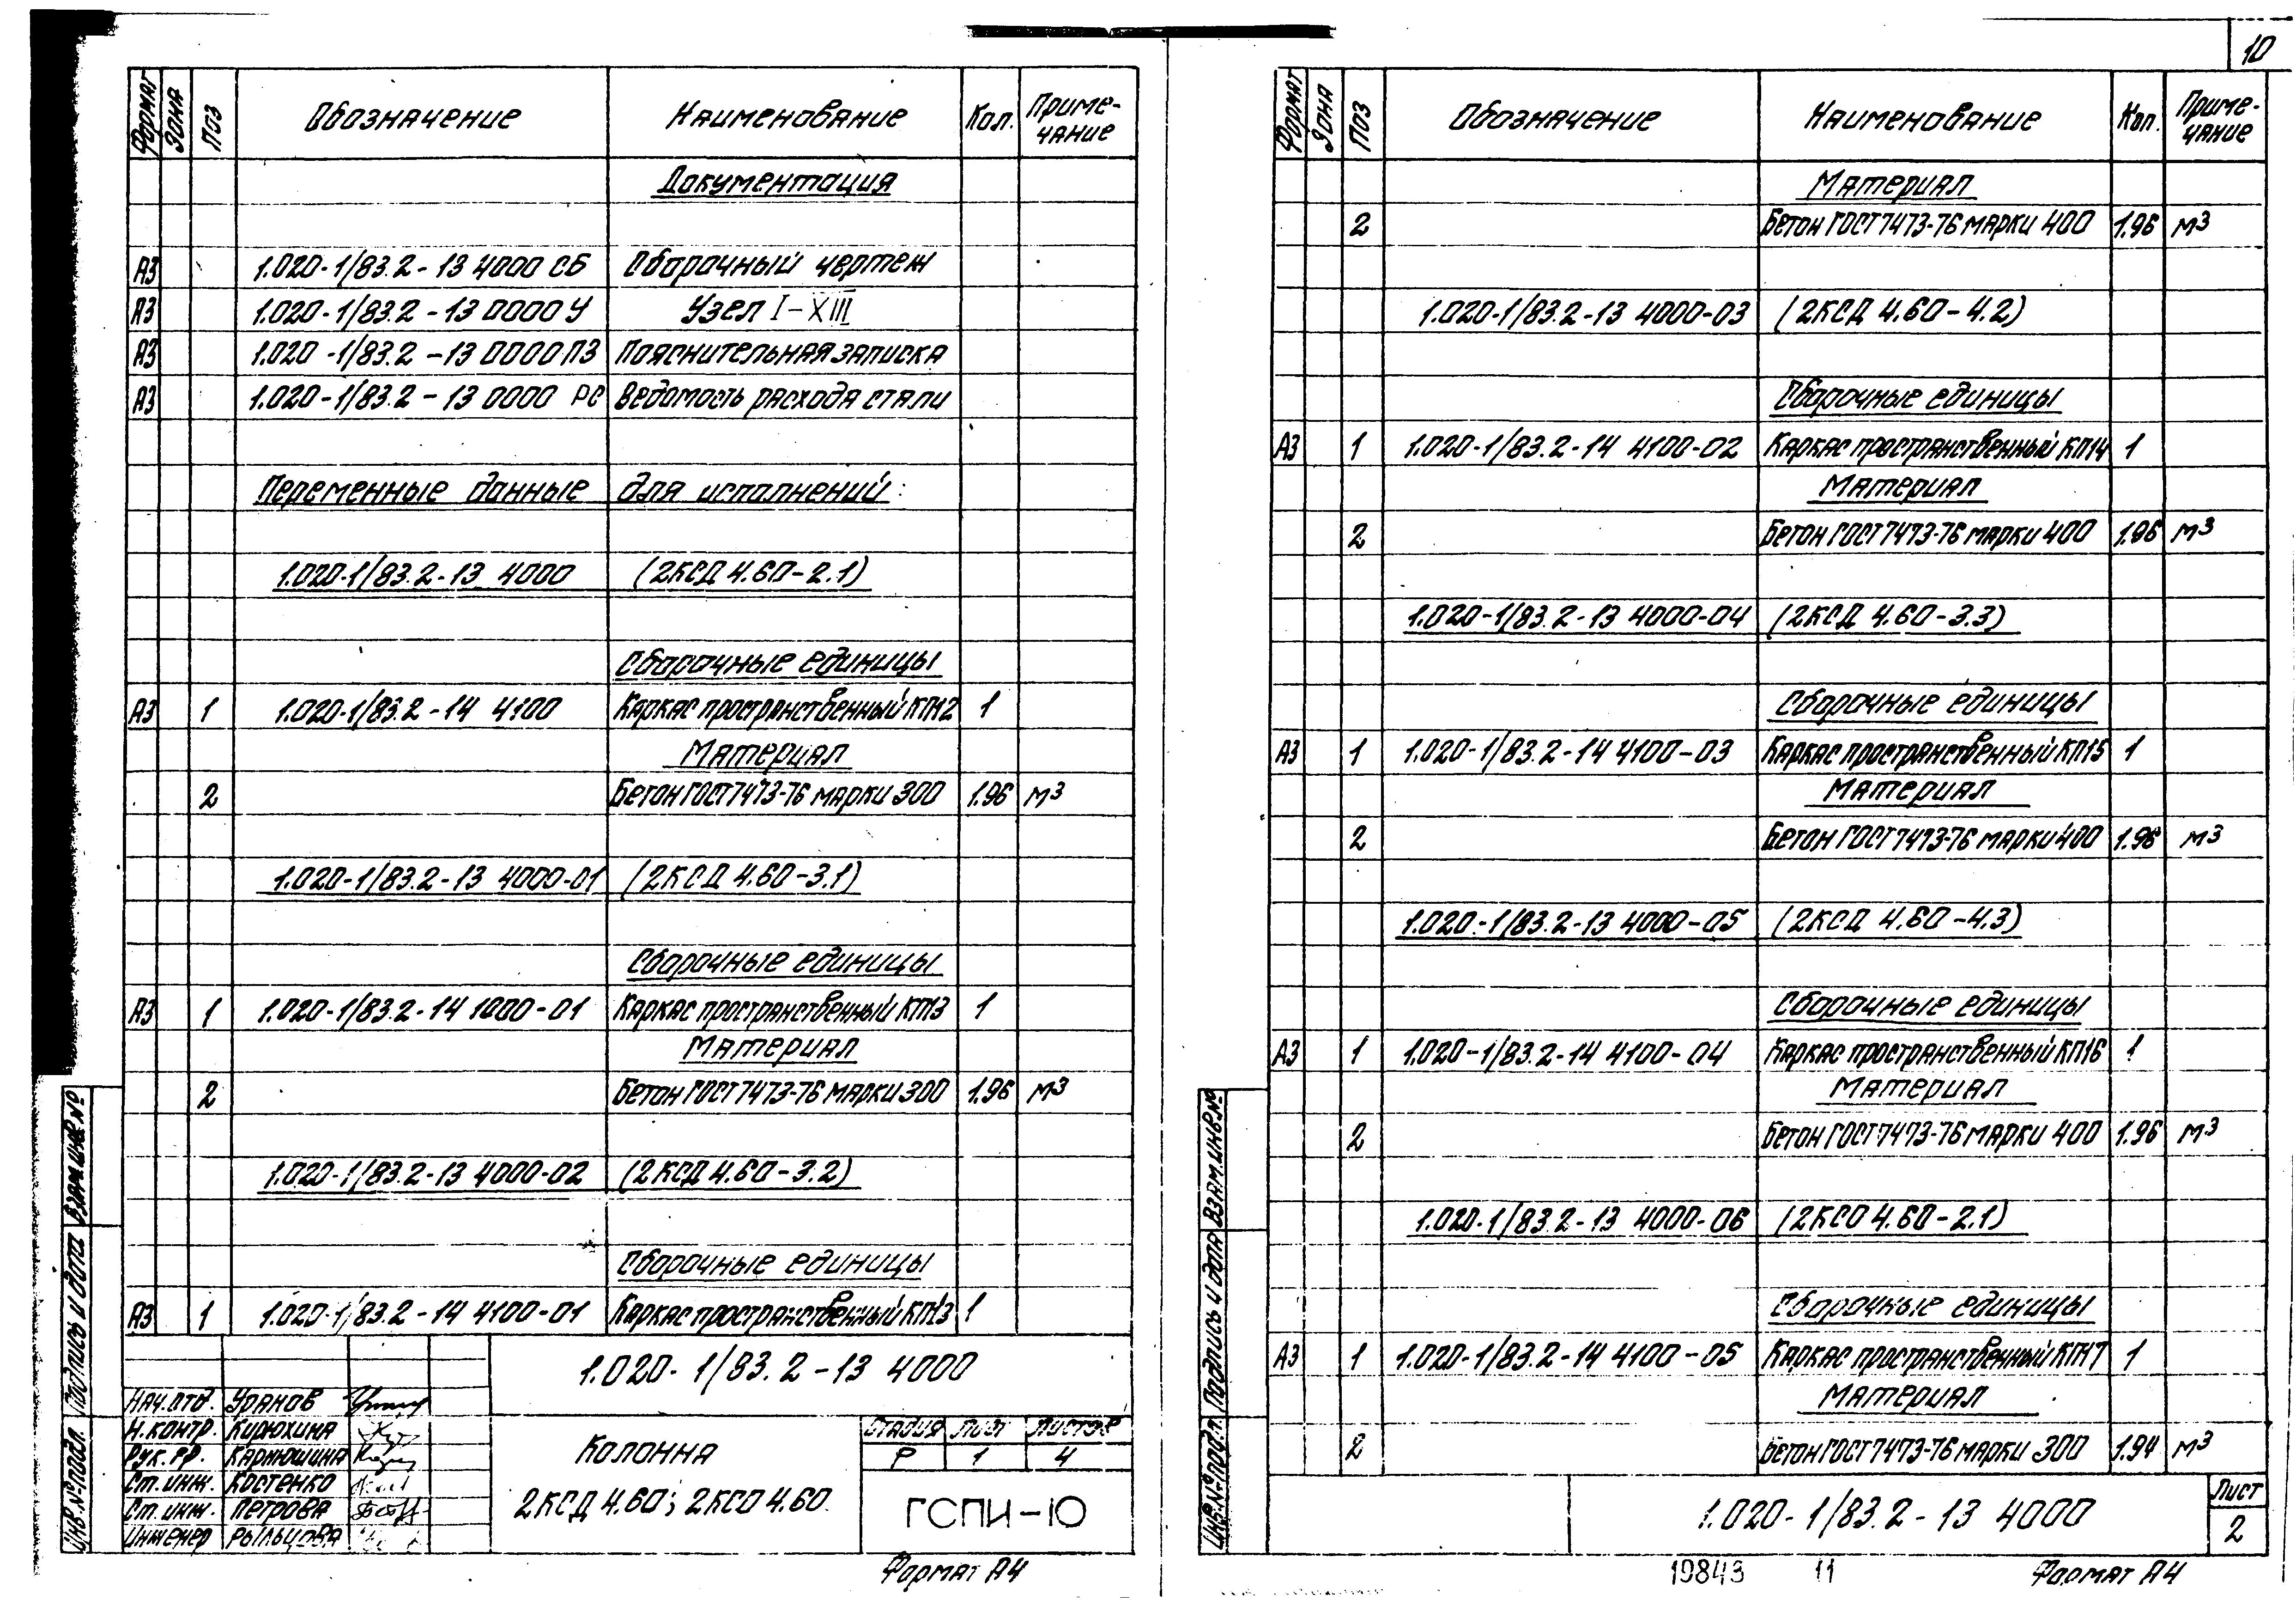 10
Формат Зона Поз Обозначение Наименование Кол. Приме-
чание
Документация
А3 1.020-1/83.2-13 4000 СБ Сборочный чертеж
А3 1.020-1/83.2-13 0000 У Узел I-XIII
А3 1.020-1/83.2-13 0000 ПЗ Пояснительная записка
А3 1.020-1/83.2-13 0000 РС Ведомость расхода стали
Переменные данные для исполнений:
1.020-1/83.2-13 4000 (2КСД 4.60-2.1)
Сборочные единицы
А3 1 1.020-1/83.2-14 4100 Каркас пространственный КП12 1
Материал
2 Бетон ГОСТ 7473-76 марки 300 1.96 м3
1.020-1/83.2-13 4000-01 (2КСД 4.60-3.1)
Сборочные единицы
А3 1 1.020-1/83.2-14 1000-01 Каркас пространственный КП13 1
Материал
2 Бетон ГОСТ 7473-76 марки 300 1.96 м3
1.020-1/83.2-13 4000-02 (2КСД 4.60-3.2)
Сборочные единицы
А3 1 1.020-1/83.2-14 4100-01 Каркас пространственный КП13 1
1.020-1/83.2-13 4000
Нач.отд. Уранов
Н.контр. Кирюхина
Рук.гр. Карпюшина
Ст.инж. Костенко
Ст.инж. Петрова
Инженер Рыльцова
Колонна
2КСД 4.60; 2КСО 4.60.
Стадия Лист Листов
Р 1 4
ГСПИ-10
Формат А4
Инв.№ подл. Подпись и дата Взам.инв.№
Формат Зона Поз Обозначение Наименование Кол. Приме-
чание
Материал
2 Бетон ГОСТ 7473-76 марки 400 1.96 м3
1.020-1/83.2-13 4000-03 (2КСД 4.60-4.2)
Сборочные единицы
А3 1 1.020-1/83.2-14 4100-02 Каркас пространственный КП14 1
Материал
2 Бетон ГОСТ 7473-76 марки 400 1.96 м3
1.020-1/83.2-13 4000-04 (2КСД 4.60-3.3)
Сборочные единицы
А3 1 1.020-1/83.2-14 4100-03 Каркас пространственный КП15 1
Материал
2 Бетон ГОСТ 7473-76 марки 400 1.96 м3
1.020-1/83.2-13 4000-05 (2КСД 4.60-4.3)
Сборочные единицы
А3 1 1.020-1/83.2-14 4100-04 Каркас пространственный КП16 1
Материал
2 Бетон ГОСТ 7473-76 марки 400 1.96 м3
1.020-1/83.2-13 4000-06 (2КСО 4.60-2.1)
Сборочные единицы
А3 1 1.020-1/83.2-14 4100-05 Каркас пространственный КП17 1
Материал
2 Бетон ГОСТ 7473-76 марки 300 1.94 м3
1.020-1/83.2-13 4000
Лист
2
Инв.№ подл. Подпись и дата Взам.инв.№
19843 11 Формат А4